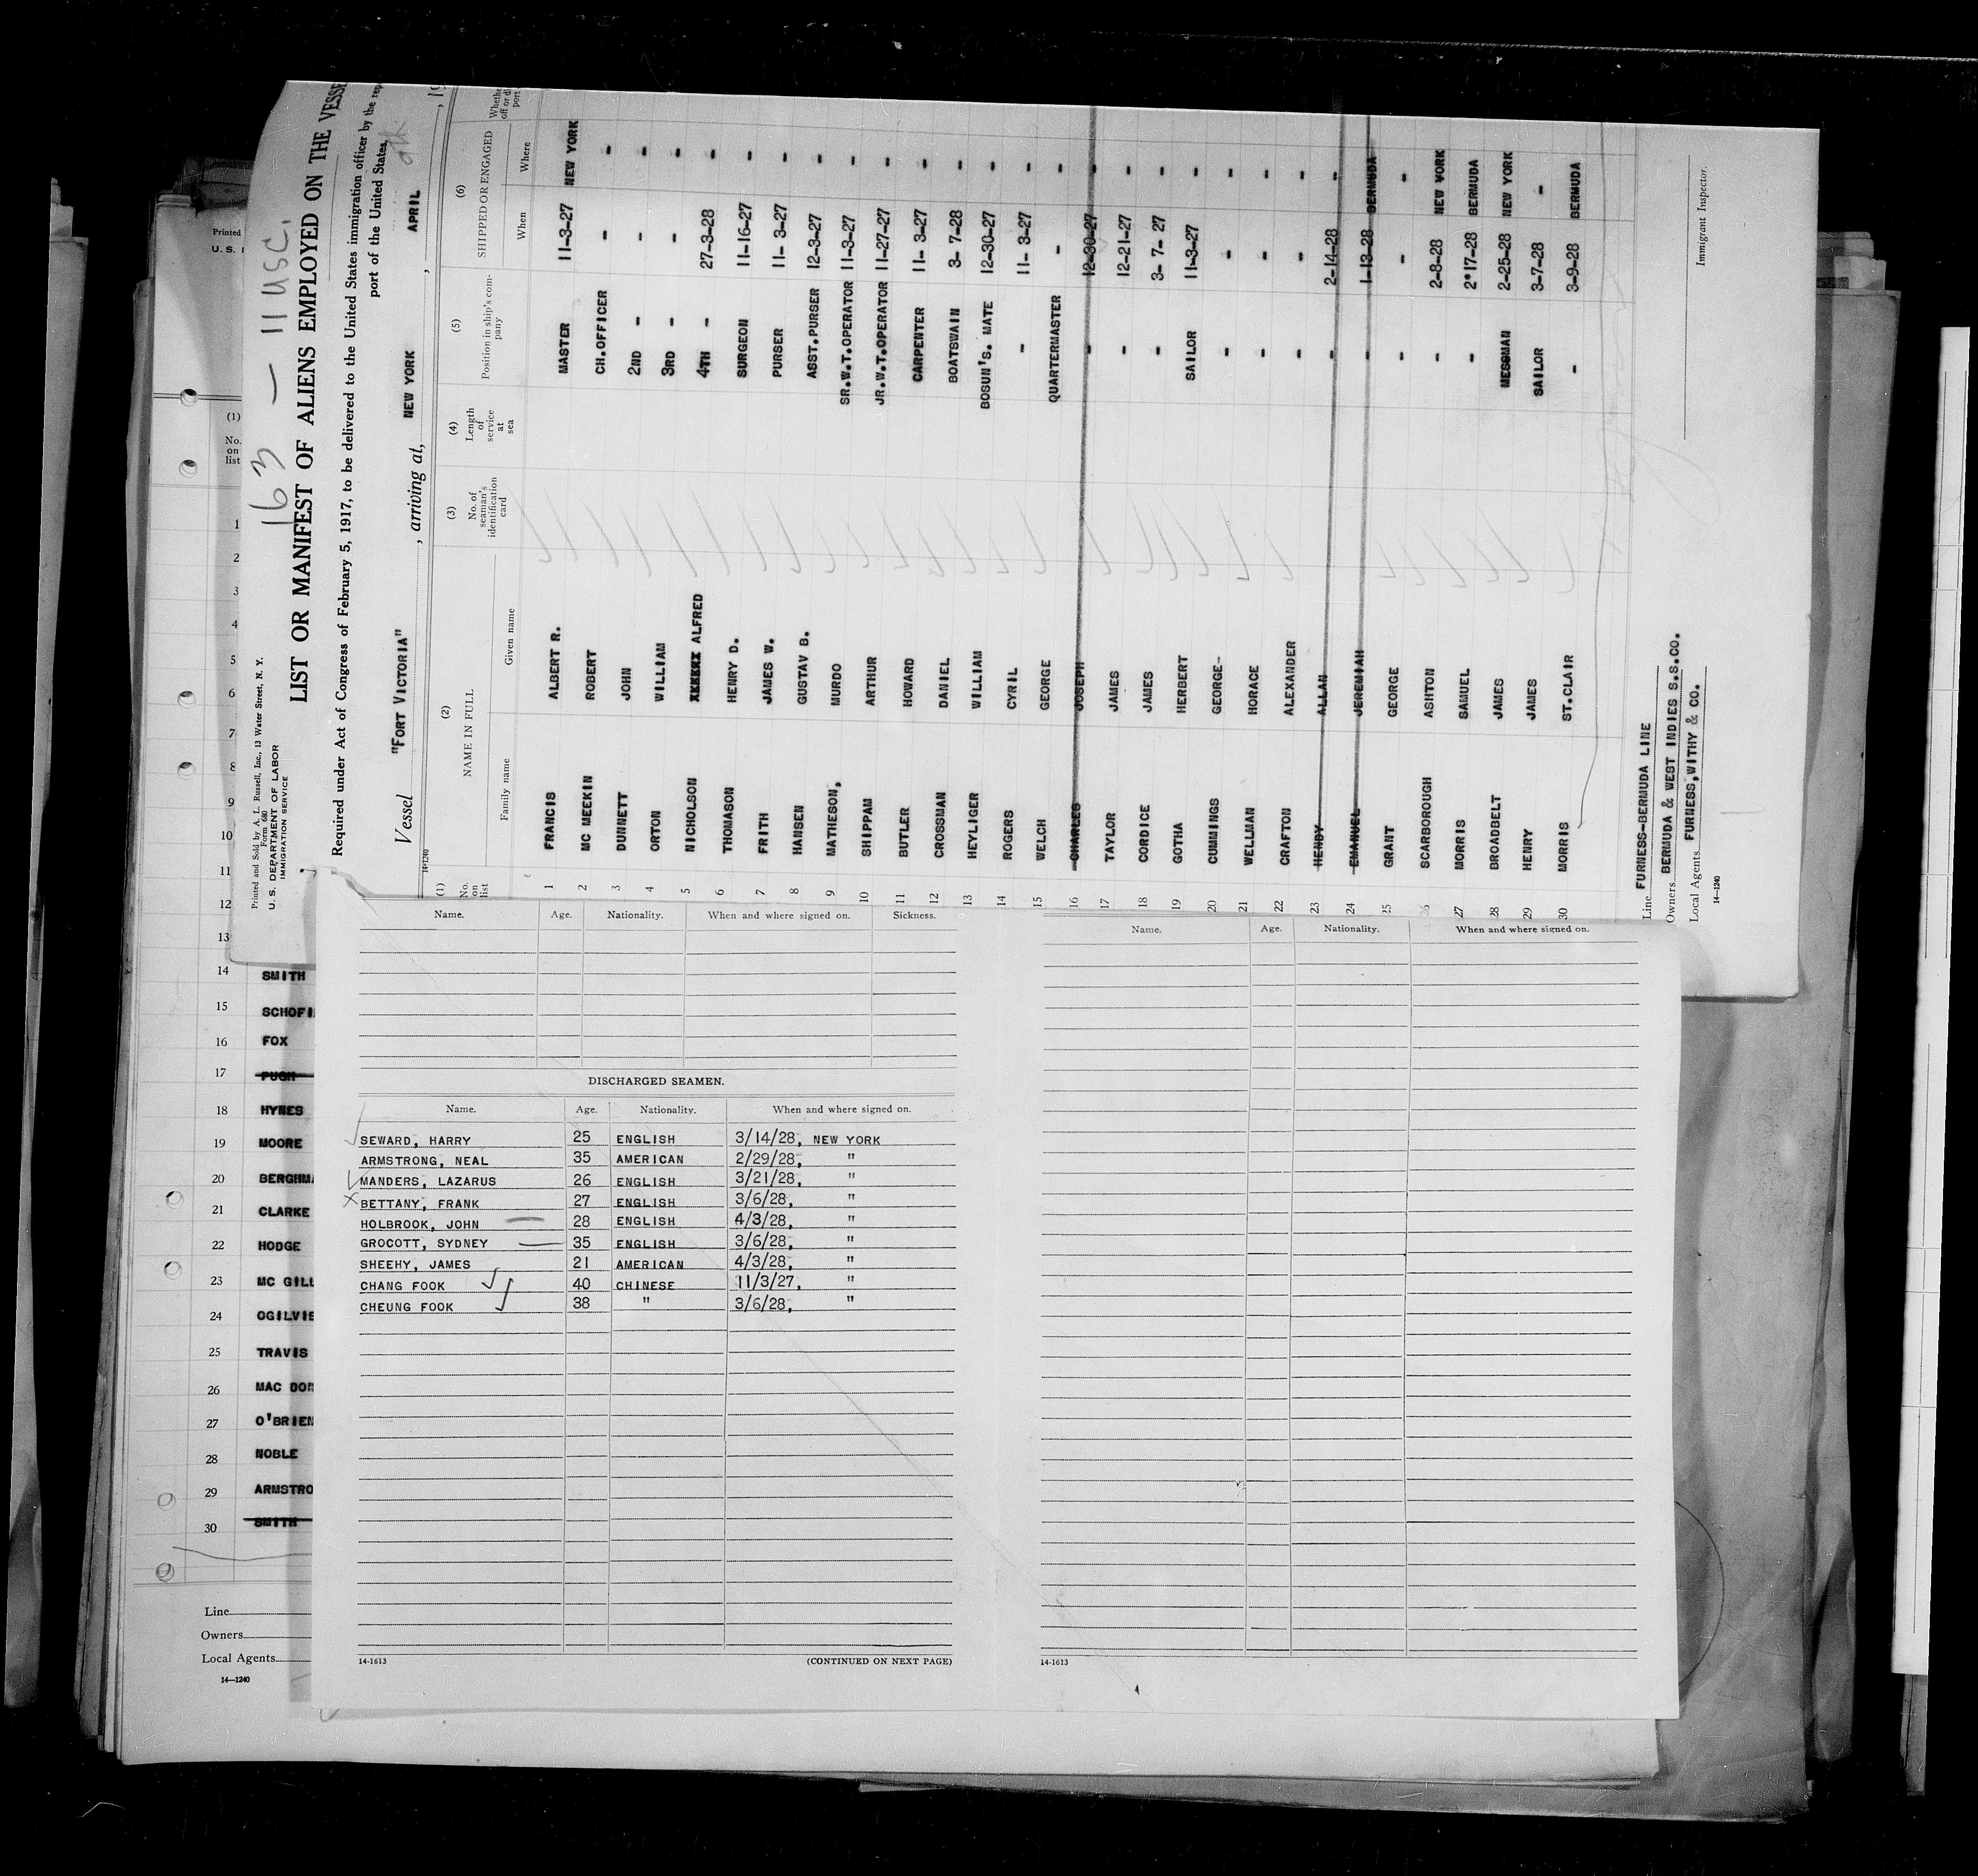 163 — 11 USC.
Printed and Sold by A. L. Russell, Inc., 13 Water Street, N. Y.
Form 680
U. S. DEPARTMENT OF LABOR
IMMIGRATION SERVICE
LIST OR MANIFEST OF ALIENS EMPLOYED ON THE VESSE
Required under Act of Congress of February 5, 1917, to be delivered to the United States immigration officer by the rep
port of the United States
Vessel "FORT VICTORIA", arriving at, NEW YORK, APRIL 9th, 19
14-1240
(1) (2) (3) (4) (5) (6)
No. on list NAME IN FULL No. of seaman's identification card Length of service at sea Position in ship's company SHIPPED OR ENGAGED
Family name Given name When Where
1 FRANCIS ALBERT R. MASTER 11-3-27 NEW YORK
2 MC MEEKIN ROBERT CH.OFFICER - -
3 DUNNETT JOHN 2ND - - -
4 ORTON WILLIAM 3RD - - -
5 NICHOLSON XXXXXX ALFRED 4TH - 27-3-28 -
6 THOMASON HENRY D. SURGEON 11-16-27 -
7 FRITH JAMES W. PURSER 11- 3-27 -
8 HANSEN GUSTAV B. ASST.PURSER 12-3-27 -
9 MATHESON, MURDO SR.W.T.OPERATOR 11-3-27 -
10 SHIPPAM ARTHUR JR.W.T.OPERATOR 11-27-27 -
11 BUTLER HOWARD CARPENTER 11- 3-27 -
12 CROSSMAN DANIEL BOATSWAIN 3- 7-28 -
13 HEYLIGER WILLIAM BOSUN'S. MATE 12-30-27 -
14 ROGERS CYRIL - 11- 3-27 -
15 WELCH GEORGE QUARTERMASTER - -
16 CHARLES JOSEPH - 12-30-27 -
17 TAYLOR JAMES - 12-21-27 -
18 CORDICE JAMES - 3- 7- 27 -
19 GOTHA HERBERT SAILOR 11-3-27 -
20 CUMMINGS GEORGE- - - -
21 WELLMAN HORACE - - -
22 CRAFTON ALEXANDER - - -
23 HENRY ALLAN - 2-14-28 -
24 EMANUEL JEREMIAH - 1-13-28 BERMUDA
25 GRANT GEORGE - - -
26 SCARBOROUGH ASHTON - 2-8-28 NEW YORK
27 MORRIS SAMUEL - 2*17-28 BERMUDA
28 BROADBELT JAMES MESSMAN 2-25-28 NEW YORK
29 HENRY JAMES SAILOR 3-7-28 -
30 MORRIS ST.CLAIR - 3-9-28 BERMUDA
Line FURNESS-BERMUDA LINE
Owners BERMUDA & WEST INDIES S.S.CO.
Local Agents FURNESS,WITHY & CO.
14-1240
Immigrant Inspector.
Printed
U. S. I
(1)
No. on list
1
2
3
4
5
6
7
8
9
10
11
12
13
14 SMITH
15 SCHOFI
16 FOX
17 PUGH
18 HYNES
19 MOORE
20 BERGHMA
21 CLARKE
22 HODGE
23 MC GILL
24 OGILVIE
25 TRAVIS
26 MAC DON
27 O'BRIEN
28 NOBLE
29 ARMSTRO
30 SMITH
Line
Owners
Local Agents
14—1240
Name. Age. Nationality. When and where signed on. Sickness.
DISCHARGED SEAMEN.
Name. Age. Nationality. When and where signed on.
SEWARD, HARRY 25 ENGLISH 3/14/28, NEW YORK
ARMSTRONG, NEAL 35 AMERICAN 2/29/28, "
MANDERS, LAZARUS 26 ENGLISH 3/21/28, "
BETTANY, FRANK 27 ENGLISH 3/6/28, "
HOLBROOK, JOHN 28 ENGLISH 4/3/28, "
GROCOTT, SYDNEY 35 ENGLISH 3/6/28, "
SHEEHY, JAMES 21 AMERICAN 4/3/28, "
CHANG FOOK 40 CHINESE 11/3/27, "
CHEUNG FOOK 38 " 3/6/28, "
14-1613 (CONTINUED ON NEXT PAGE)
Name. Age. Nationality. When and where signed on.
14-1613